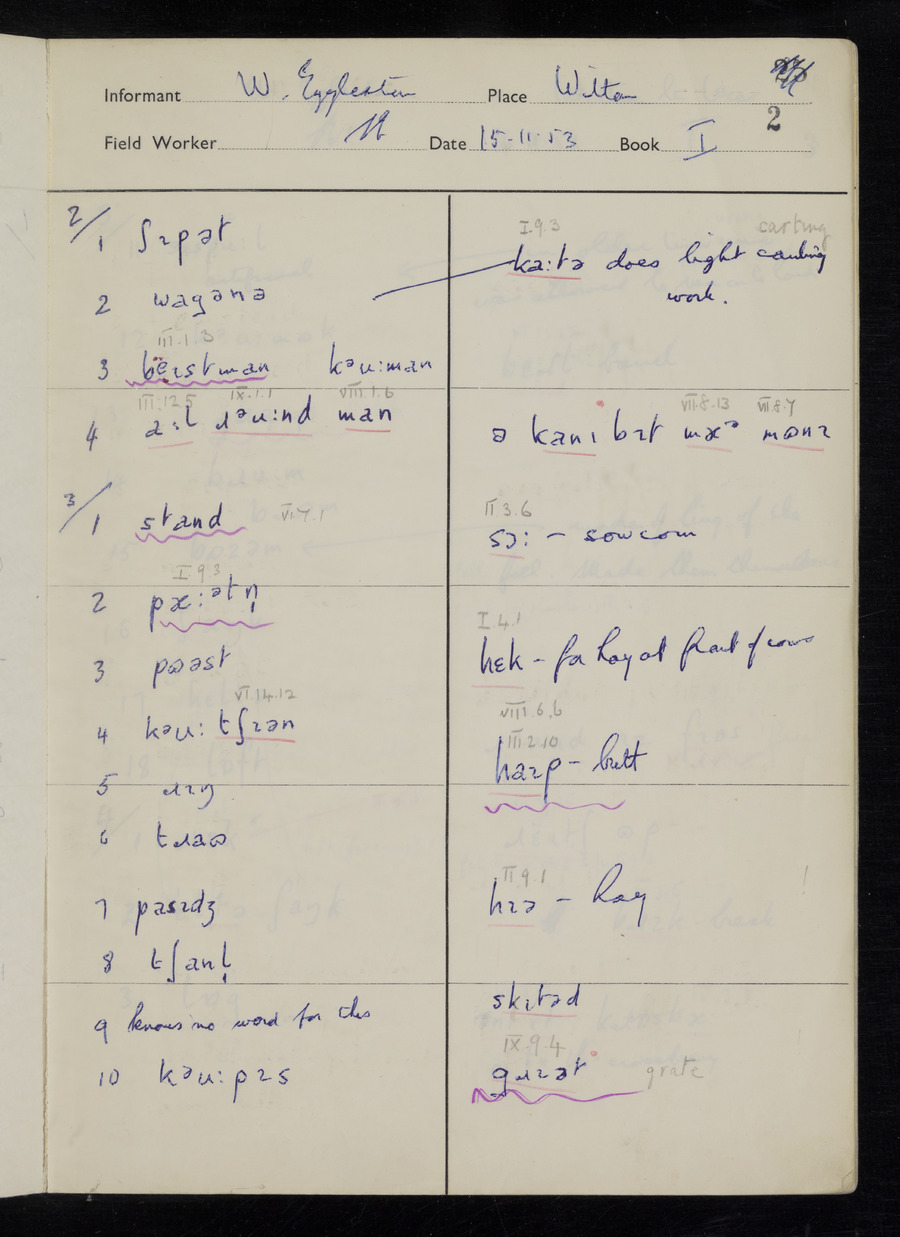 Informant W. Eggleston Place Witton
2
Field Worker Date 15-11-53 Book I
2/
1 ʃɪpət
I.9.3 carting
kaːtə does light carting
work.
2 wagənə
III.1.3
3 bɛɪstman kəuːman
III.12.5 IX.1.1 VIII.1.6
4 aːl ɹəuːnd man
VII.8.13 VII.8.7
ə kani bɪt mæə mɒnɪ
3/
1 stand VI.7.1
II.3.6
sɔː –
I.9.3
2 pæːətn̩
I.4.1
hɛk – for hay at front of cows
3 pɒəst
VI.14.12
4 kəuː tʃɪən
VIII.6.6
III.2.10
haɪp – butt
5 ɹɪŋ
6 tɹaɒ
7 pasɪdʒ
II.9.1
hɪə – hay
8 tʃanl̩
skɪtəd
9 knows no word for this
IX.9.4
gɹɪət grate
10 kəuːpɪs